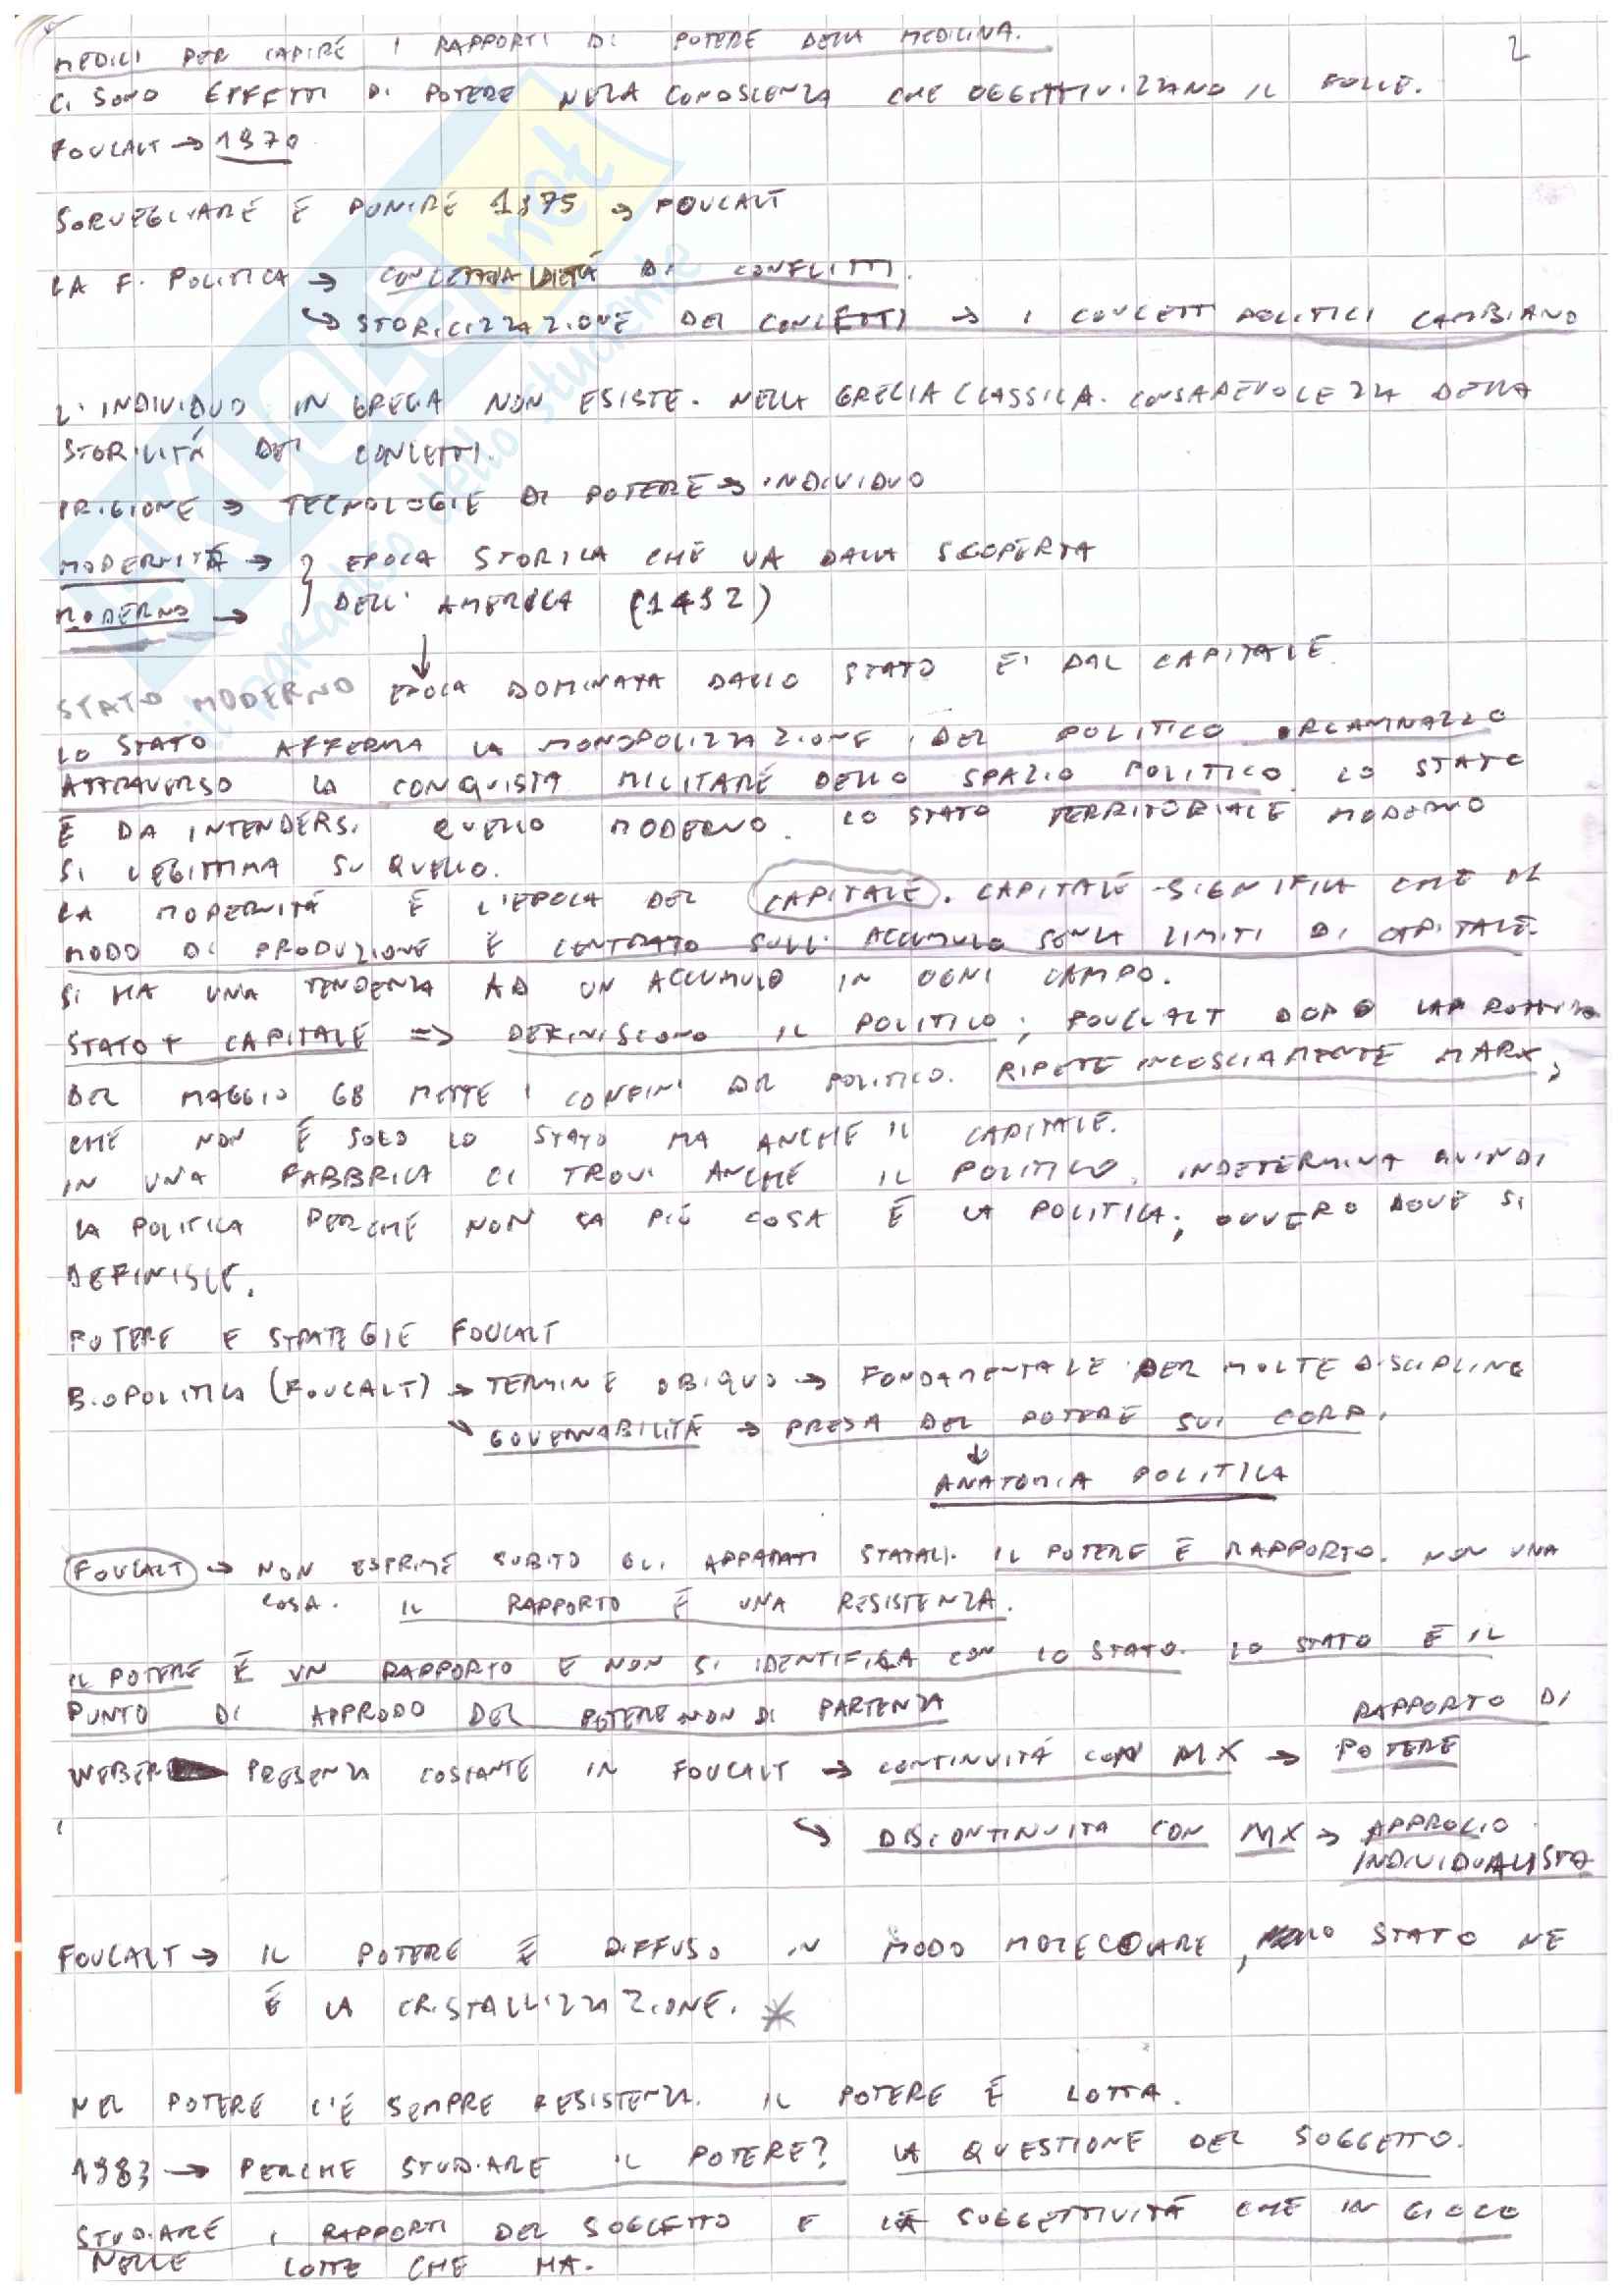 2
MEDICI PER CAPIRE I RAPPORTI DI POTERE DELLA MEDICINA.
CI SONO EFFETTI DI POTERE NELLA CONOSCENZA CHE OGGETTIVIZZANO IL FOLLE.
FOUCALT → 1970
SORVEGLIARE E PUNIRE 1975 → FOUCALT
LA F. POLITICA → DI CONFLITTI.
↳ STORICIZZAZIONE DEI CONCETTI → I CONCETTI POLITICI CAMBIANO
L'INDIVIDUO IN GRECIA NON ESISTE. NELLA GRECIA CLASSICA. CONSAPEVOLEZZA DELLA
STORICITÁ DEI CONCETTI.
PRIGIONE → TECNOLOGIE DI POTERE → INDIVIDUO
MODERNITÁ → } EPOCA STORICA CHE VA DALLA SCOPERTA
MODERNO → DELL'AMERICA (1492)
↓
STATO MODERNO EPOCA DOMINATA DALLO STATO E DAL CAPITALE.
LO STATO AFFERMA LA MONOPOLIZZAZIONE DEL POLITICO
ATTRAVERSO LA CONQUISTA MILITARE DELLO SPAZIO POLITICO. LO STATO
È DA INTENDERSI QUELLO MODERNO. LO STATO TERRITORIALE MODERNO
SI LEGITTIMA SU QUELLO.
LA MODERNITÁ È L'EPOCA DEL CAPITALE. CAPITALE SIGNIFICA CHE IL
MODO DI PRODUZIONE È CENTRATO SULL'ACCUMULO SENZA LIMITI DI CAPITALE.
SI HA UNA TENDENZA AD UN ACCUMULO IN OGNI CAMPO.
STATO + CAPITALE => DEFINISCONO IL POLITICO; FOUCALT DOPO LA ROTTURA
DEL MAGGIO 68 METTE I CONFINI DEL POLITICO. RIPETE INCOSCIAMENTE MARX,
CHE NON È SOLO LO STATO MA ANCHE IL CAPITALE.
IN UNA FABBRICA CI TROVI ANCHE IL POLITICO. INDETERMINA QUINDI
LA POLITICA PERCHÉ NON SA PIÙ COSA È LA POLITICA; OVVERO DOVE SI
DEFINISCE.
POTERE E STRATEGIE FOUCALT
BIOPOLITICA (FOUCALT) → TERMINE OBIQUO → FONDAMENTALE PER MOLTE DISCIPLINE
↘ GOVERNABILITÁ → PRESA DEL POTERE SUI CORPI
↓
ANATOMIA POLITICA
FOUCALT → NON ESPRIME SUBITO GLI APPARATI STATALI. IL POTERE È RAPPORTO. NON UNA
COSA. IL RAPPORTO È UNA RESISTENZA.
IL POTERE È UN RAPPORTO E NON SI IDENTIFICA CON LO STATO. LO STATO È IL
PUNTO DI APPRODO DEL POTERE NON DI PARTENZA
WEBER PRESENZA COSTANTE IN FOUCALT → CONTINUITÁ CON MX → RAPPORTO DI POTERE
↳ DISCONTINUITA CON MX → APPROCIO INDIVIDUALISTA
FOUCALT → IL POTERE È DIFFUSO IN MODO MOLECOLARE, LO STATO NE
È LA CRISTALLIZZAZIONE. *
NEL POTERE C'È SEMPRE RESISTENZA. IL POTERE È LOTTA.
1983 → PERCHE STUDIARE IL POTERE? LA QUESTIONE DEL SOGGETTO.
STUDIARE I RAPPORTI DEL SOGGETTO E LA SOGGETTIVITÁ CHE IN GIOCO
NELLE LOTTE CHE HA.
SKUOLA.net
il paradiso dello studente